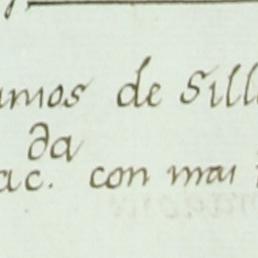 amos de Sill
da
ac. con mai